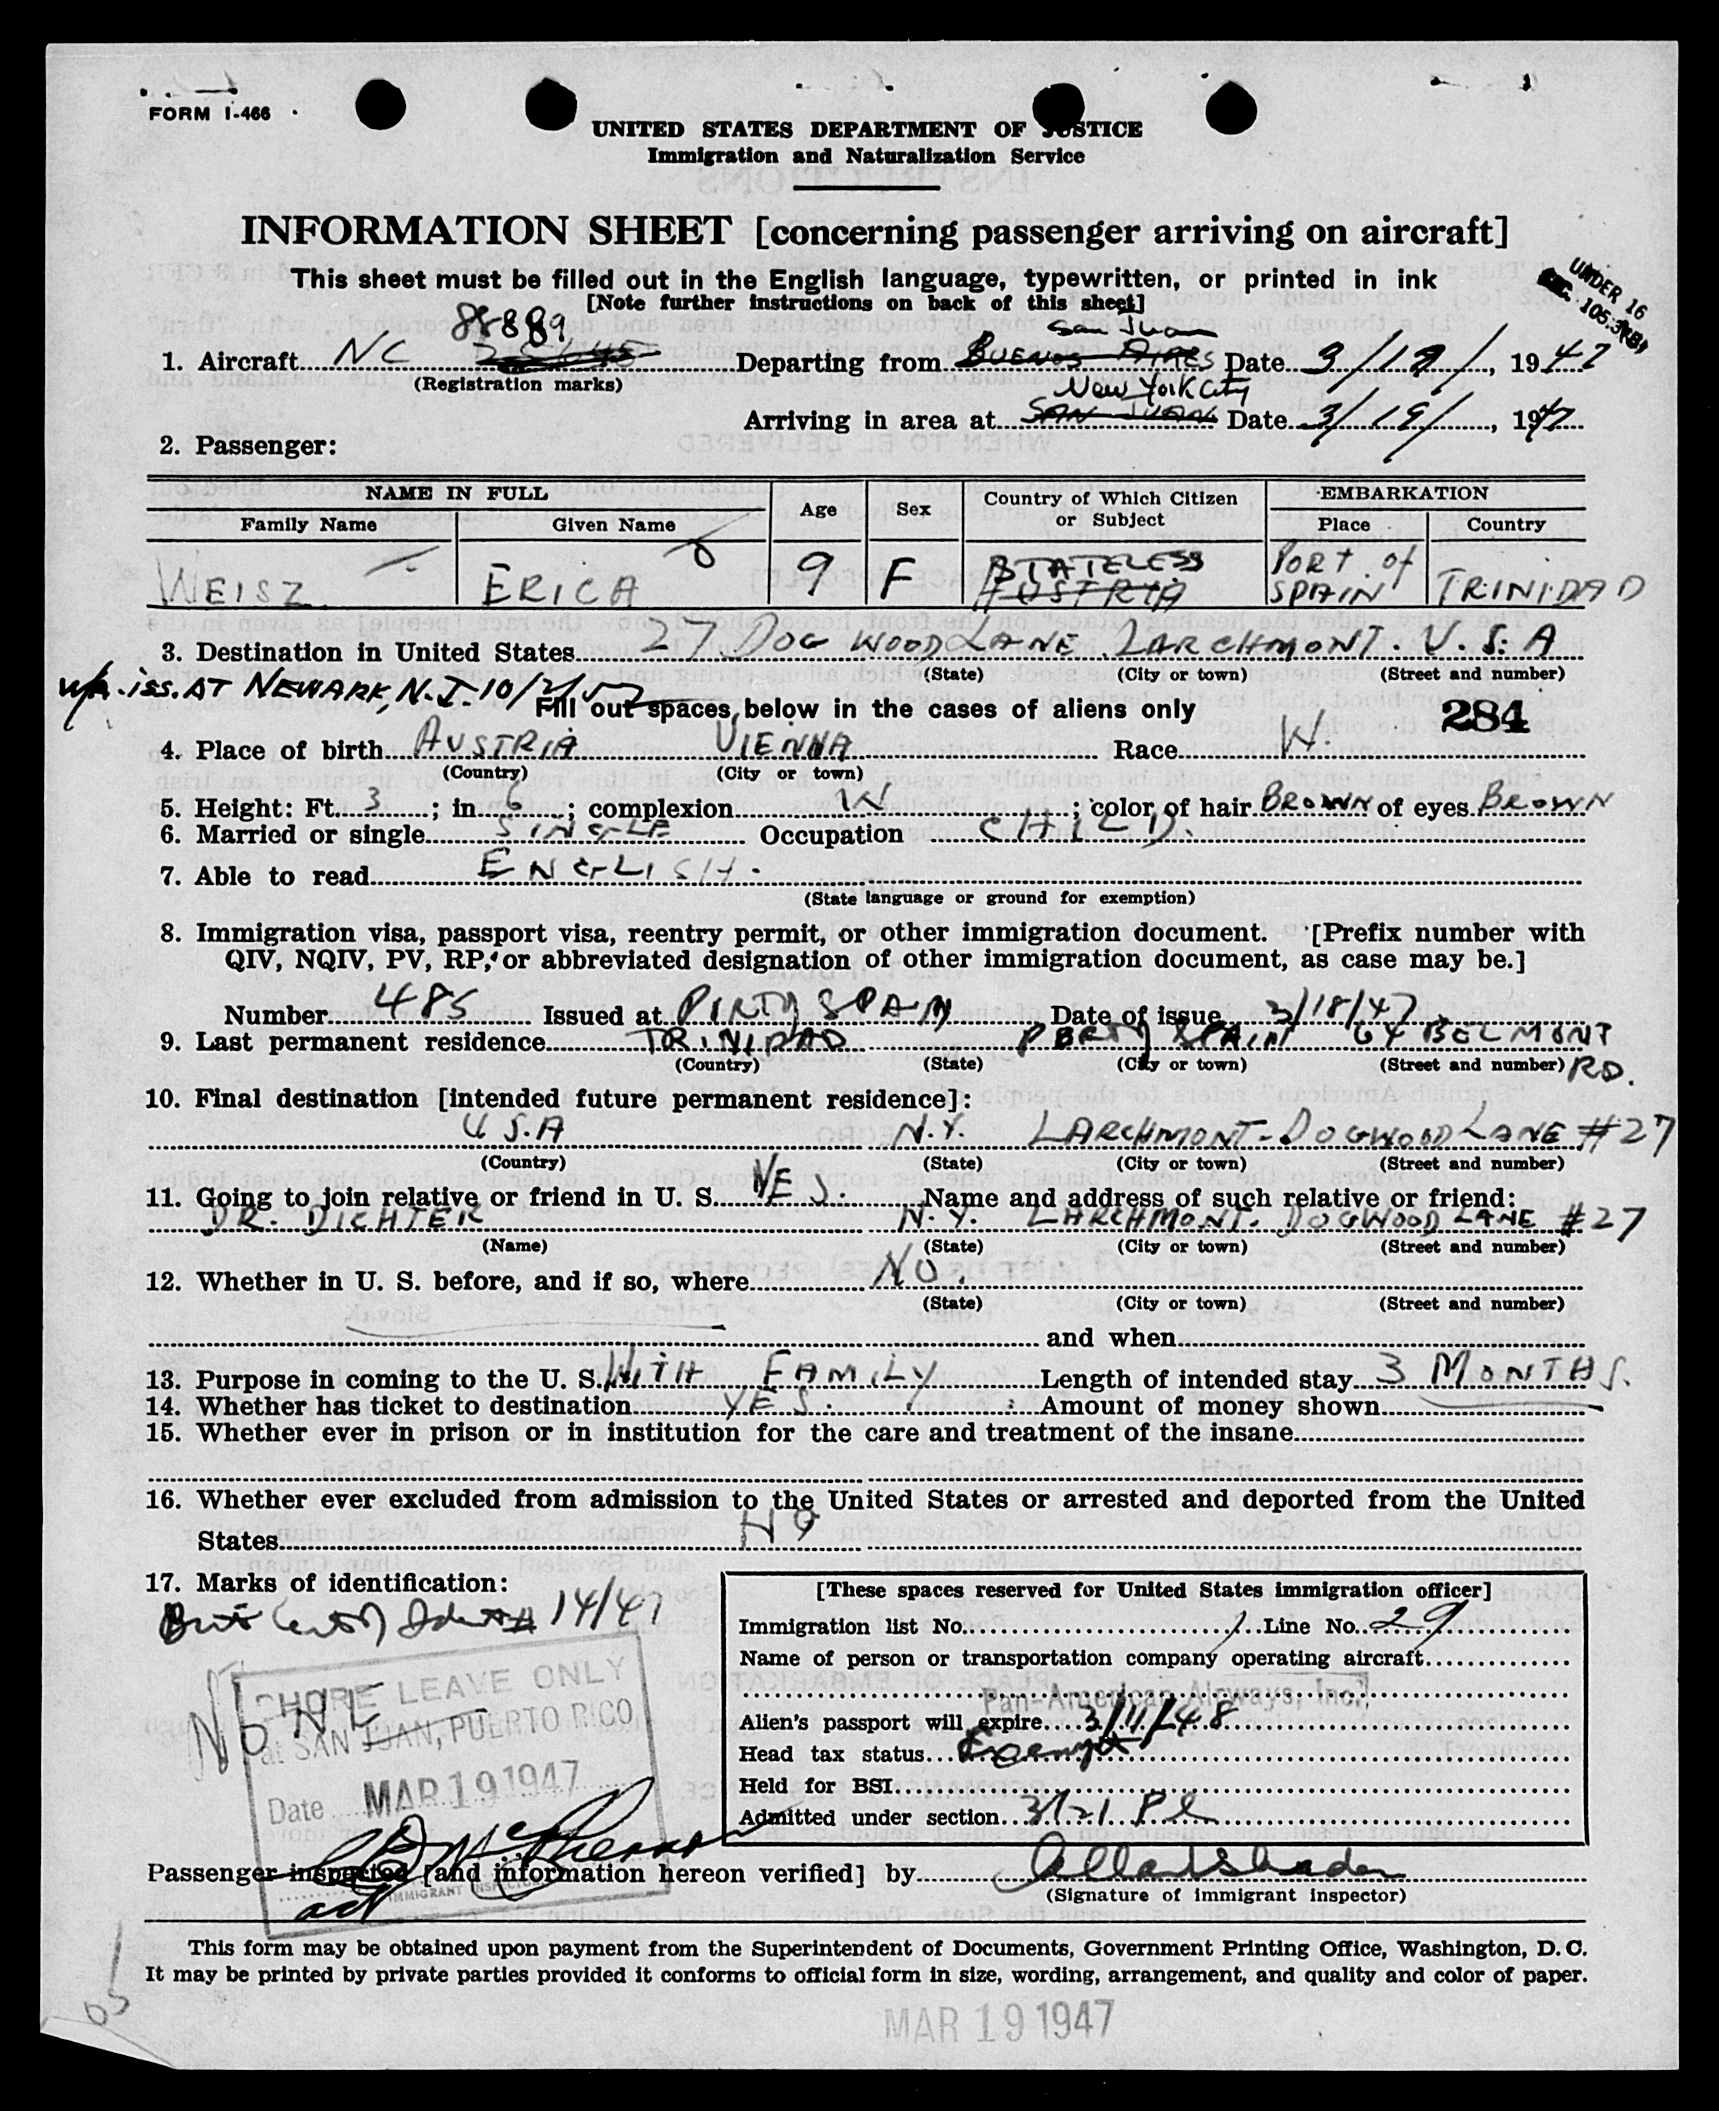 FORM I-466
UNITED STATES DEPARTMENT OF JUSTICE
Immigration and Naturalization Service
INFORMATION SHEET [concerning passenger arriving on aircraft]
This sheet must be filled out in the English language, typewritten, or printed in ink
[Note further instructions on back of this sheet]
UNDER 16
SEC. 105.3(B)
88889
San Juan
1. Aircraft NC Departing from BUENOS AIRES Date 3/19/, 1947
(Registration marks)
New York City
Arriving in area at SAN JUAN Date 3/19/, 1947
2. Passenger:
NAME IN FULL Age Sex Country of Which Citizen or Subject EMBARKATION
Family Name Given Name Place Country
WEISZ ERICA 9 F STATELESS AUSTRIA PORT of SPAIN TRINIDAD
3. Destination in United States 27 DOG WOOD LANE LARCHMONT. U.S.A
(State) (City or town) (Street and number)
iss. AT NEWARK, N.J. 10/2/52
Fill out spaces below in the cases of aliens only 284
4. Place of birth AUSTRIA VIENNA Race W.
(Country) (City or town)
5. Height: Ft. 3; in. 6; complexion W; color of hair BROWN of eyes BROWN
6. Married or single SINGLE Occupation CHILD.
7. Able to read ENGLISH.
(State language or ground for exemption)
8. Immigration visa, passport visa, reentry permit, or other immigration document. [Prefix number with
QIV, NQIV, PV, RP, or abbreviated designation of other immigration document, as case may be.]
Number 485 Issued at PIRT of SPAIN Date of issue 3/18/47
9. Last permanent residence TRINIDAD PORT of SPAIN 64 BELMONT RD.
(Country) (State) (City or town) (Street and number)
10. Final destination [intended future permanent residence]:
U.S.A N.Y. LARCHMONT-DOGWOOD LANE #27
(Country) (State) (City or town) (Street and number)
11. Going to join relative or friend in U. S. YES. Name and address of such relative or friend:
DR. DICHTER N.Y. LARCHMONT. DOGWOOD LANE #27
(Name) (State) (City or town) (Street and number)
12. Whether in U. S. before, and if so, where NO.
(State) (City or town) (Street and number)
and when
13. Purpose in coming to the U. S. WITH FAMILY Length of intended stay 3 MONTHS.
14. Whether has ticket to destination YES. Amount of money shown
15. Whether ever in prison or in institution for the care and treatment of the insane
16. Whether ever excluded from admission to the United States or arrested and deported from the United
States NO
17. Marks of identification:
14/47
NONE
SHORE LEAVE ONLY
at SAN JUAN, PUERTO RICO
Date MAR 19 1947
IMMIGRANT INSPECTOR
[These spaces reserved for United States immigration officer]
Immigration list No. 1 Line No. 29
Name of person or transportation company operating aircraft
Pan-American Airways, Inc.
Alien's passport will expire 3/11/48
Head tax status Exempt
Held for BSI
Admitted under section 3(2)
Passenger inspected [and information hereon verified] by
(Signature of immigrant inspector)
This form may be obtained upon payment from the Superintendent of Documents, Government Printing Office, Washington, D. C.
It may be printed by private parties provided it conforms to official form in size, wording, arrangement, and quality and color of paper.
MAR 19 1947